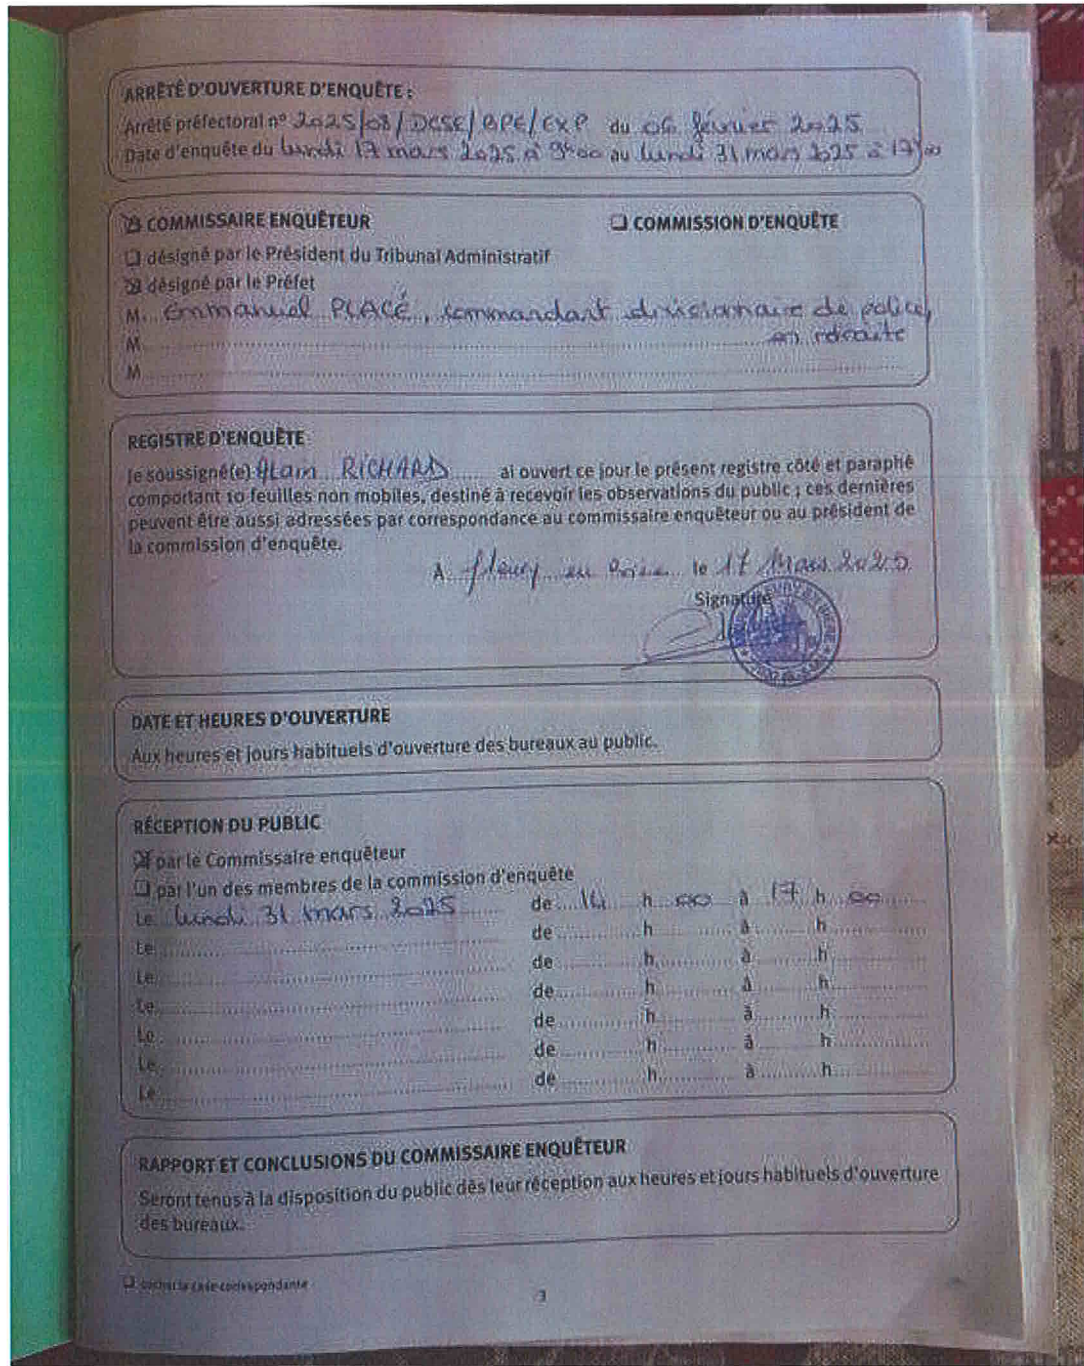 ARRÊTÉ D'OUVERTURE D'ENQUÊTE :
Arrêté préfectoral n° 2025/08/DCSE/BPE/EXP du 06 février 2025
Date d'enquête du lundi 17 mars 2025 à 9h00 au lundi 31 mars 2025 à 17h00
☒ COMMISSAIRE ENQUÊTEUR ☐ COMMISSION D'ENQUÊTE
☐ désigné par le Président du Tribunal Administratif
☒ désigné par le Préfet
M. Emmanuel PLACÉ, commandant divisionnaire de police,
M en retraite
M
REGISTRE D'ENQUÊTE
Je soussigné(e) Alain RICHARD ai ouvert ce jour le présent registre côté et paraphé
comportant 10 feuilles non mobiles, destiné à recevoir les observations du public ; ces dernières
peuvent être aussi adressées par correspondance au commissaire enquêteur ou au président de
la commission d'enquête.
A fleury en Bière le 17 Mars 2025
Signature
DATE ET HEURES D'OUVERTURE
Aux heures et jours habituels d'ouverture des bureaux au public.
RÉCEPTION DU PUBLIC
☒ par le Commissaire enquêteur
☐ par l'un des membres de la commission d'enquête
Le lundi 31 mars 2025 de 14 h 00 à 17 h 00
Le de h à h
Le de h à h
Le de h à h
Le de h à h
Le de h à h
Le de h à h
RAPPORT ET CONCLUSIONS DU COMMISSAIRE ENQUÊTEUR
Seront tenus à la disposition du public dès leur réception aux heures et jours habituels d'ouverture
des bureaux.
☐ cocher la case correspondante
3